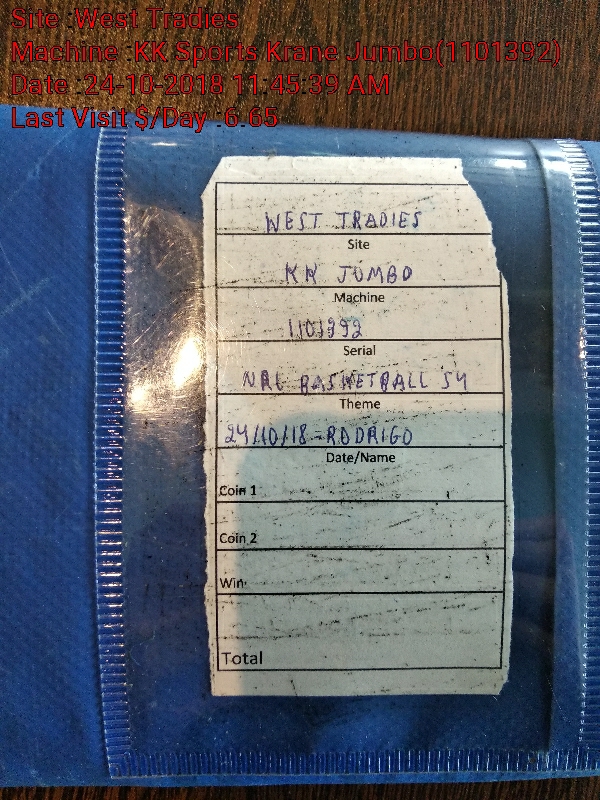 Site :West Tradies
Machine :KK Sports Krane Jumbo(1101392)
Date :24-10-2018 11:45:39 AM
Last Visit $/Day :6.65
WEST TRADIES
Site
KK JUMBO
Machine
1101392
Serial
NRL BASKETBALL S4
Theme
24/10/18-RODRIGO
Date/Name
Coin 1
Coin 2
Win
Total